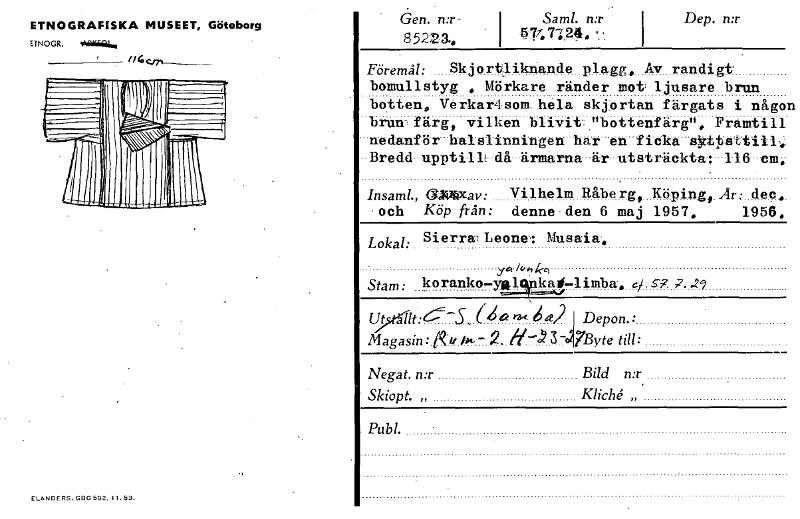 ETNOGRAFISKA MUSEET, Göteborg
ETNOGR. ARKEOL.
116 cm
ELANDERS, GBG 502. 11. 53.
Gen. n:r Saml. n:r Dep. n:r
85223. 57.7.24.
Föremål: Skjortliknande plagg. Av randigt
bomullstyg . Mörkare ränder mot ljusare brun
botten. Verkar som hela skjortan färgats i någon
brun färg, vilken blivit "bottenfärg". Framtill
nedanför halslinningen har en ficka sytts till.
Bredd upptill då ärmarna är utsträckta: 116 cm.
Insaml., av: Vilhelm Råberg, Köping, År: dec.
och Köp från: denne den 6 maj 1957. 1956.
Lokal: Sierra Leone: Musaia.
yalunka
Stam: koranko-yalonka-limba. cf. 57.7.29
Utställt: C-S. (bamba) Depon.:
Magasin: Rum-2. H-23-27 Byte till:
Negat. n:r Bild n:r
Skiopt. „ Kliché „
Publ.